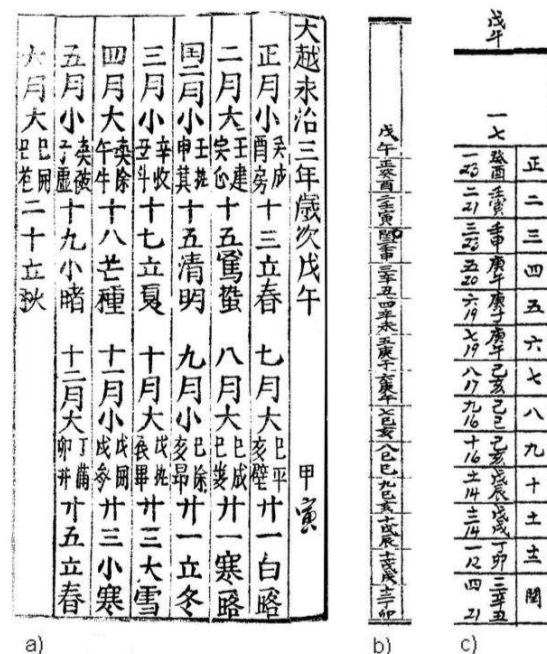 大越永治三年歲次戊午 甲寅
正月小 癸成酉房 十三立春 七月大 己平亥壁 廿一白路
二月大 壬建寅心 十五驚蟄 八月大 己成巳婁 廿一寒路
国二月小 壬執申箕 十五清明 九月小 己除亥昴 廿一立冬
三月小 辛收丑斗 十七立夏 十月大 戊執辰畢 廿三大雪
四月大 庚除午牛 十八芒種 十一月小 戊閉戌參 廿三小寒
五月小 庚破子虛 十九小暑 十二月大 丁滿卯井 廿五立春
六月大 二十立秋
a)
戊午正癸酉二壬寅閏壬申三辛丑四辛未五庚子六庚午七己亥八己巳九己亥十戊辰十一戊戌十二丁卯
b)
戊午
一七
正 癸酉 一23
二 壬寅 二21
三 壬申 三23
四 庚午 五20
五 庚子 六19
六 庚午 七19
七 己亥 八17
八 己巳 九16
九 己亥 十16
十 戊辰 十一14
十一 戊戌 十二14
十二 丁卯 一12
閏 三辛丑 四21
c)